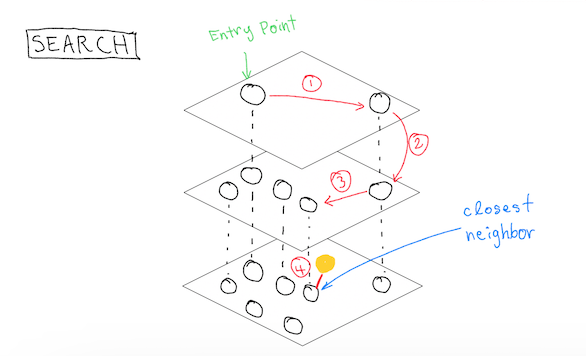 SEARCH
Entry Point
1
2
3
closest
neighbor
4